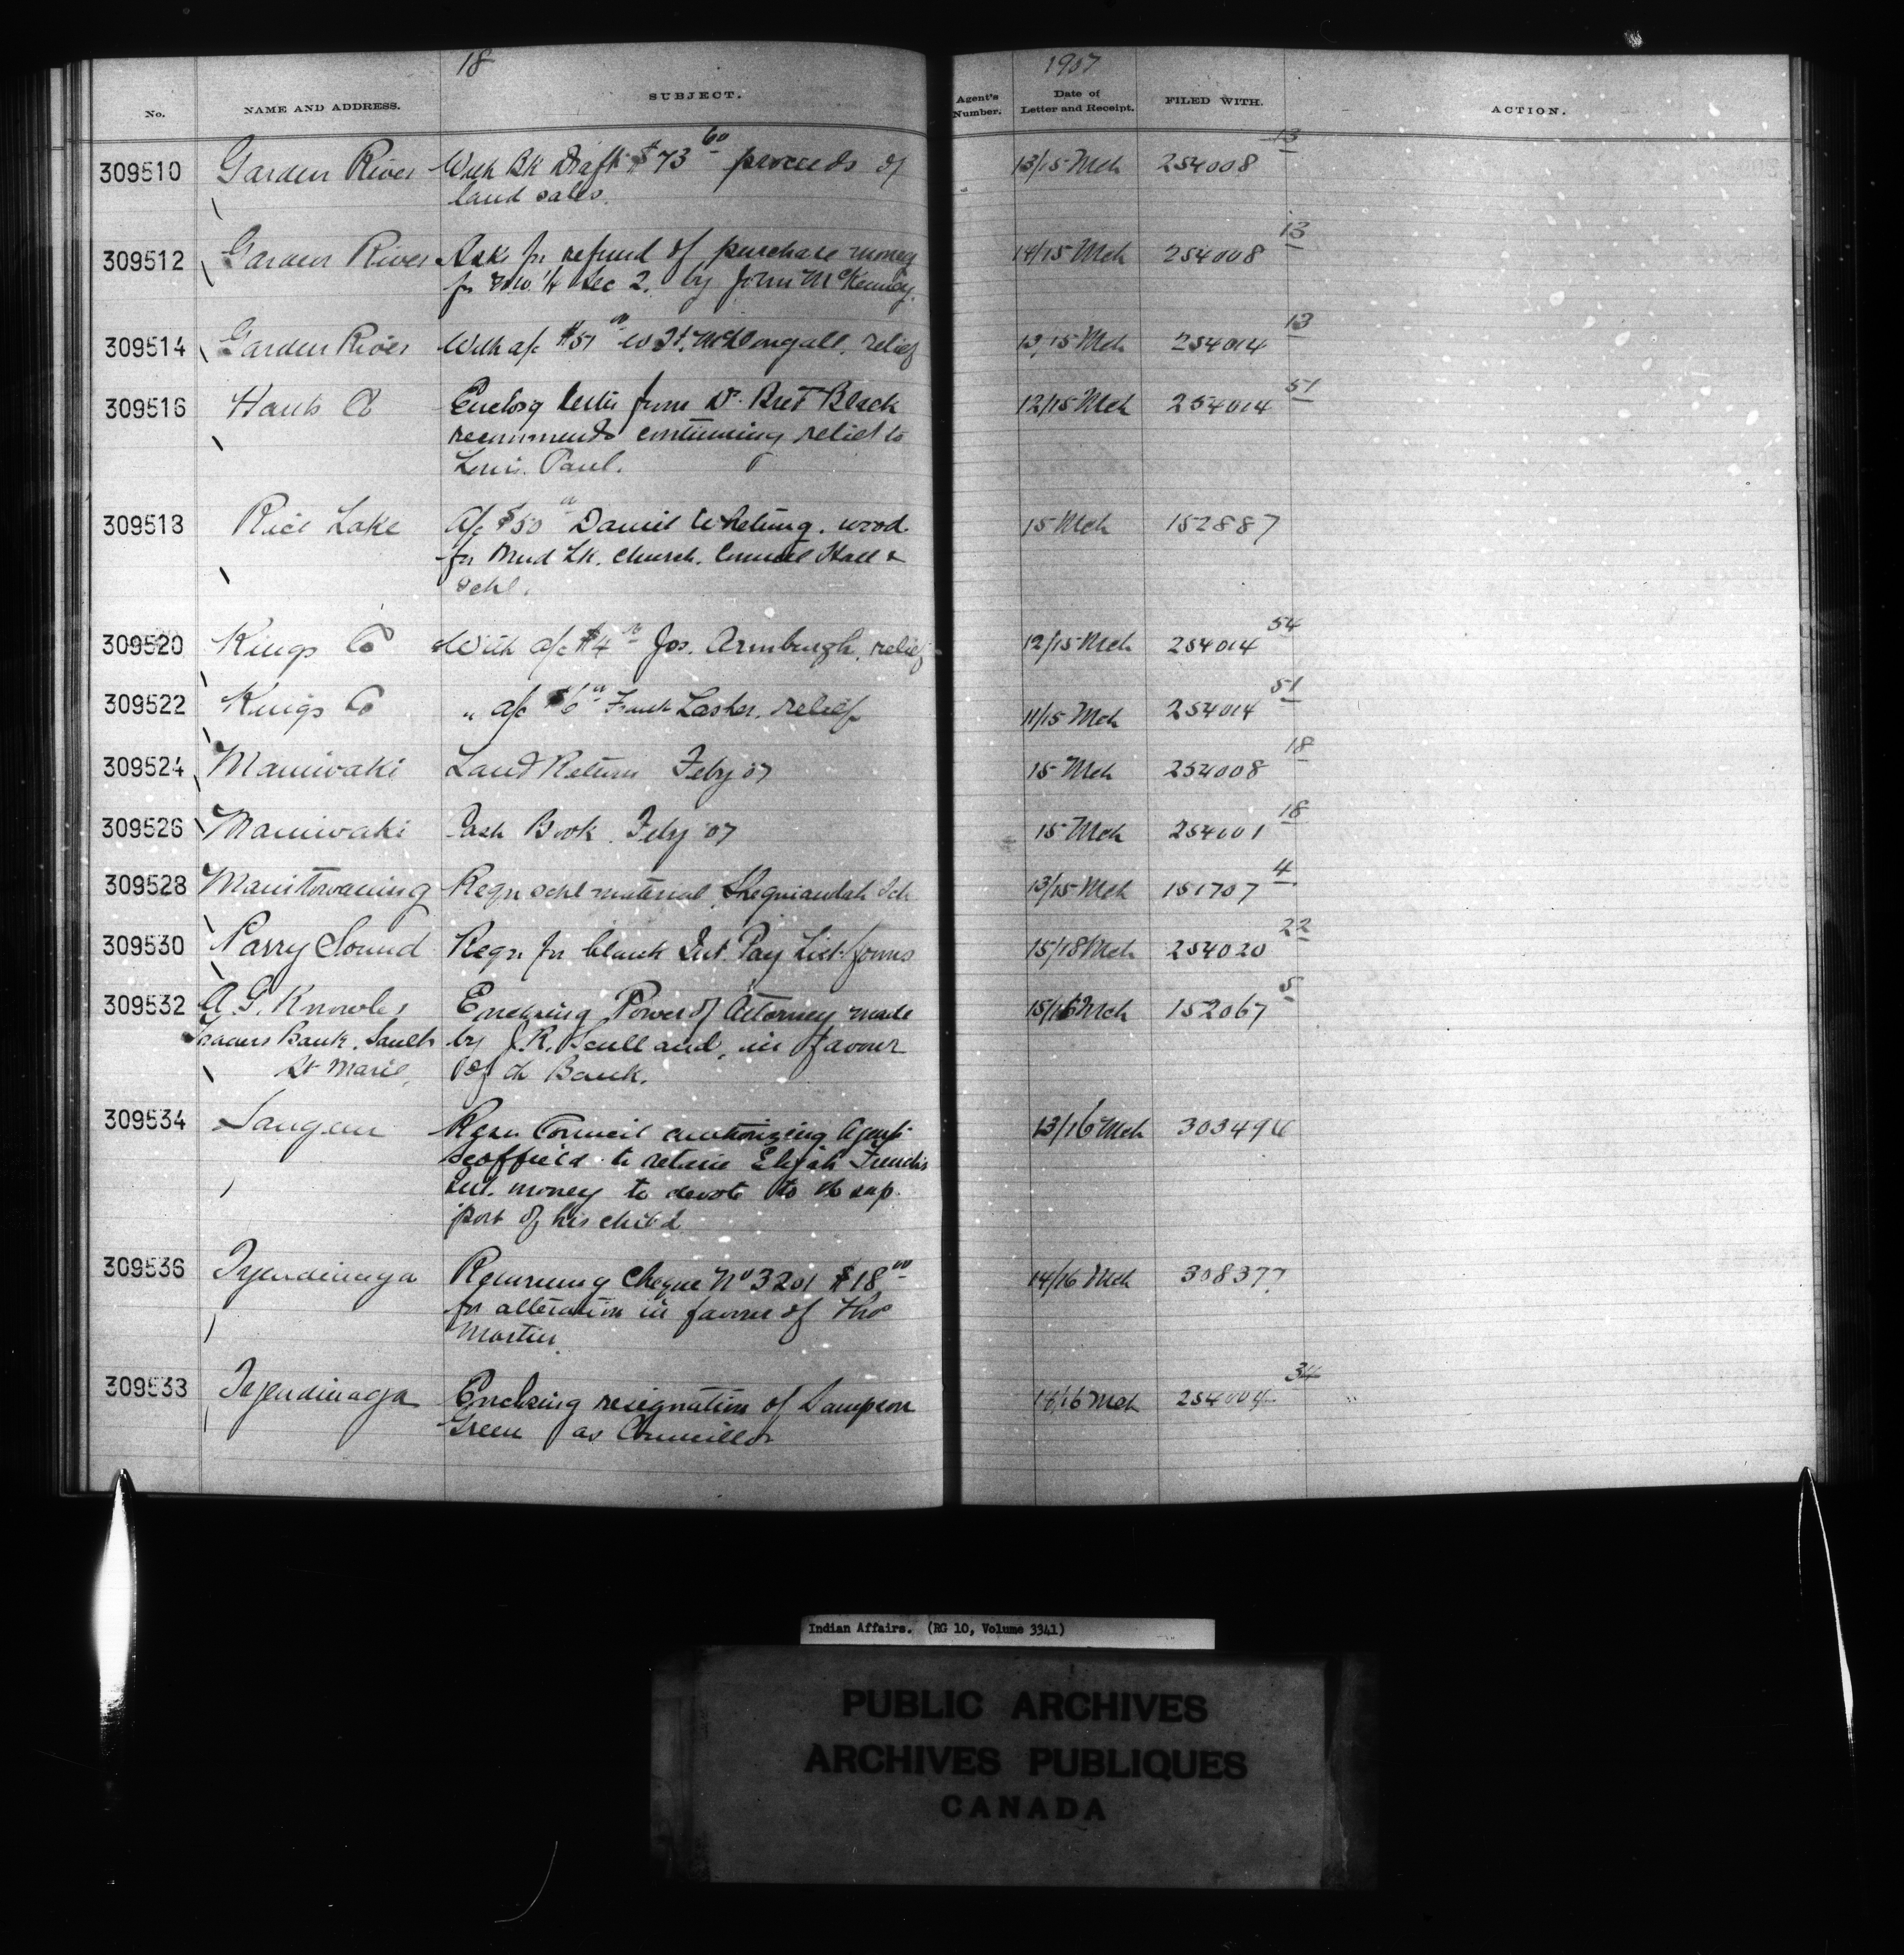 18
1907
No. NAME AND ADDRESS. SUBJECT. Agent's Number. Date of Letter and Receipt. FILED WITH. ACTION.
309510 Garden River With Bk Draft $73 60 proceeds of 13/15 Mch 254008 13
land sales.
309512 Garden River Asks for refund of purchase money 14/15 Mch 254008 13
for 1/4 Sec 2. by John McKenney.
309514 Garden River With a/c $51 00 McDougall, relief 13/15 Mch 254014 13
309516 Hants Co Enclosg letter from Dr. Black 12/15 Mch 254014 51
recommends continuing relief to
Louis Paul.
309518 Rice Lake A/c $50 00 Daniel Whetung. wood 15 Mch 152887
for Mud Lk. Church, Council Hall &
Schl.
309520 Kings Co With a/c $4 Jos. Armburgh, relief 12/15 Mch 254014 54
309522 Kings Co " a/c $6 00 Frank Lasher, relief 11/15 Mch 254014 51
309524 Maniwaki Land Return Feby 07 15 Mch 254008 18
309526 Maniwaki Cash Book Feby 07 15 Mch 254001 18
309528 Manitowaning Reqn schl material, Sheguiandah Sch 13/15 Mch 151707 4
309530 Parry Sound Reqn for blank Int. Pay List forms 15/18 Mch 254020 22
309532 A. G. Knowles Enclosing Power of Attorney made 15/16 Mch 152067 5
Traders Bank, Sault by J. R. Scull and, in favour
St Marie, of th Bank.
309534 Saugeen Resn Council authorizing Agent 13/16 Mch
Scoffield to retain Elijah French's
Int. money to devote to th sup
port of his child
309536 Tyendinaga Returning Cheque No 3201 $18 00 14/16 Mch 308377
for alteration in favour of Thos
Martin.
309538 Tyendinaga Enclosing resignation of Sampson 14/16 Mch 34
Green as Councillor
Indian Affairs. (RG 10, Volume 3341)
PUBLIC ARCHIVES
ARCHIVES PUBLIQUES
CANADA